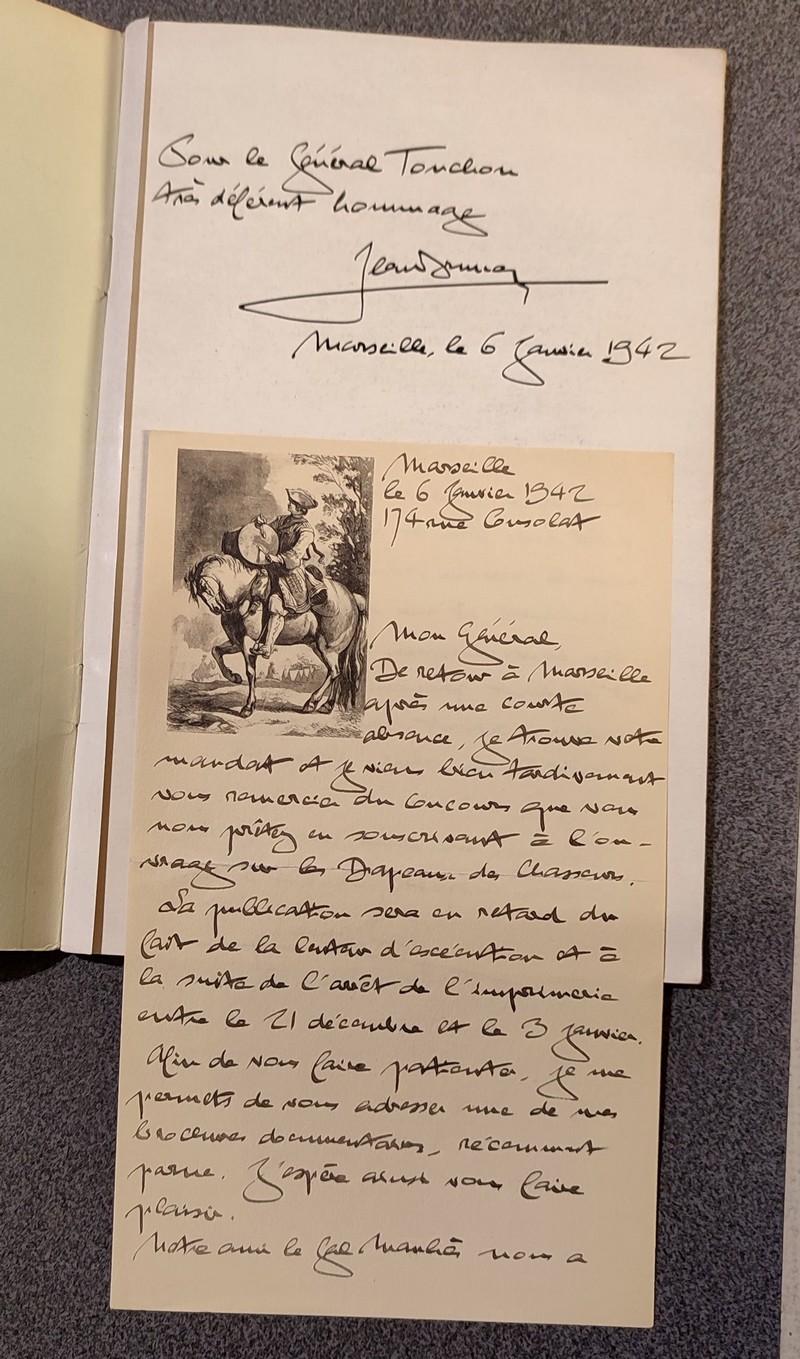 Pour le Général Touchon
très déférent hommage
Jean Brunon
Marseille, le 6 Janvier 1942
Marseille
le 6 Janvier 1942
174 rue Consolat
Mon Général,
De retour à Marseille
après une courte
absence, je trouve votre
mandat et je viens bien tardivement
vous remercier du concours que vous
nous prêtez en souscrivant à l'ou-
vrage sur les Drapeaux des Chasseurs.
La publication sera en retard du
fait de la lenteur d'exécution et à
la suite de l'arrêt de l'imprimerie
entre le 21 décembre et le 3 janvier.
Afin de vous faire patienter, je me
permets de vous adresser une de mes
brochures documentaires, récemment
parue. J'espère ainsi vous faire
plaisir.
Notre ami le Gal Manhès nous a